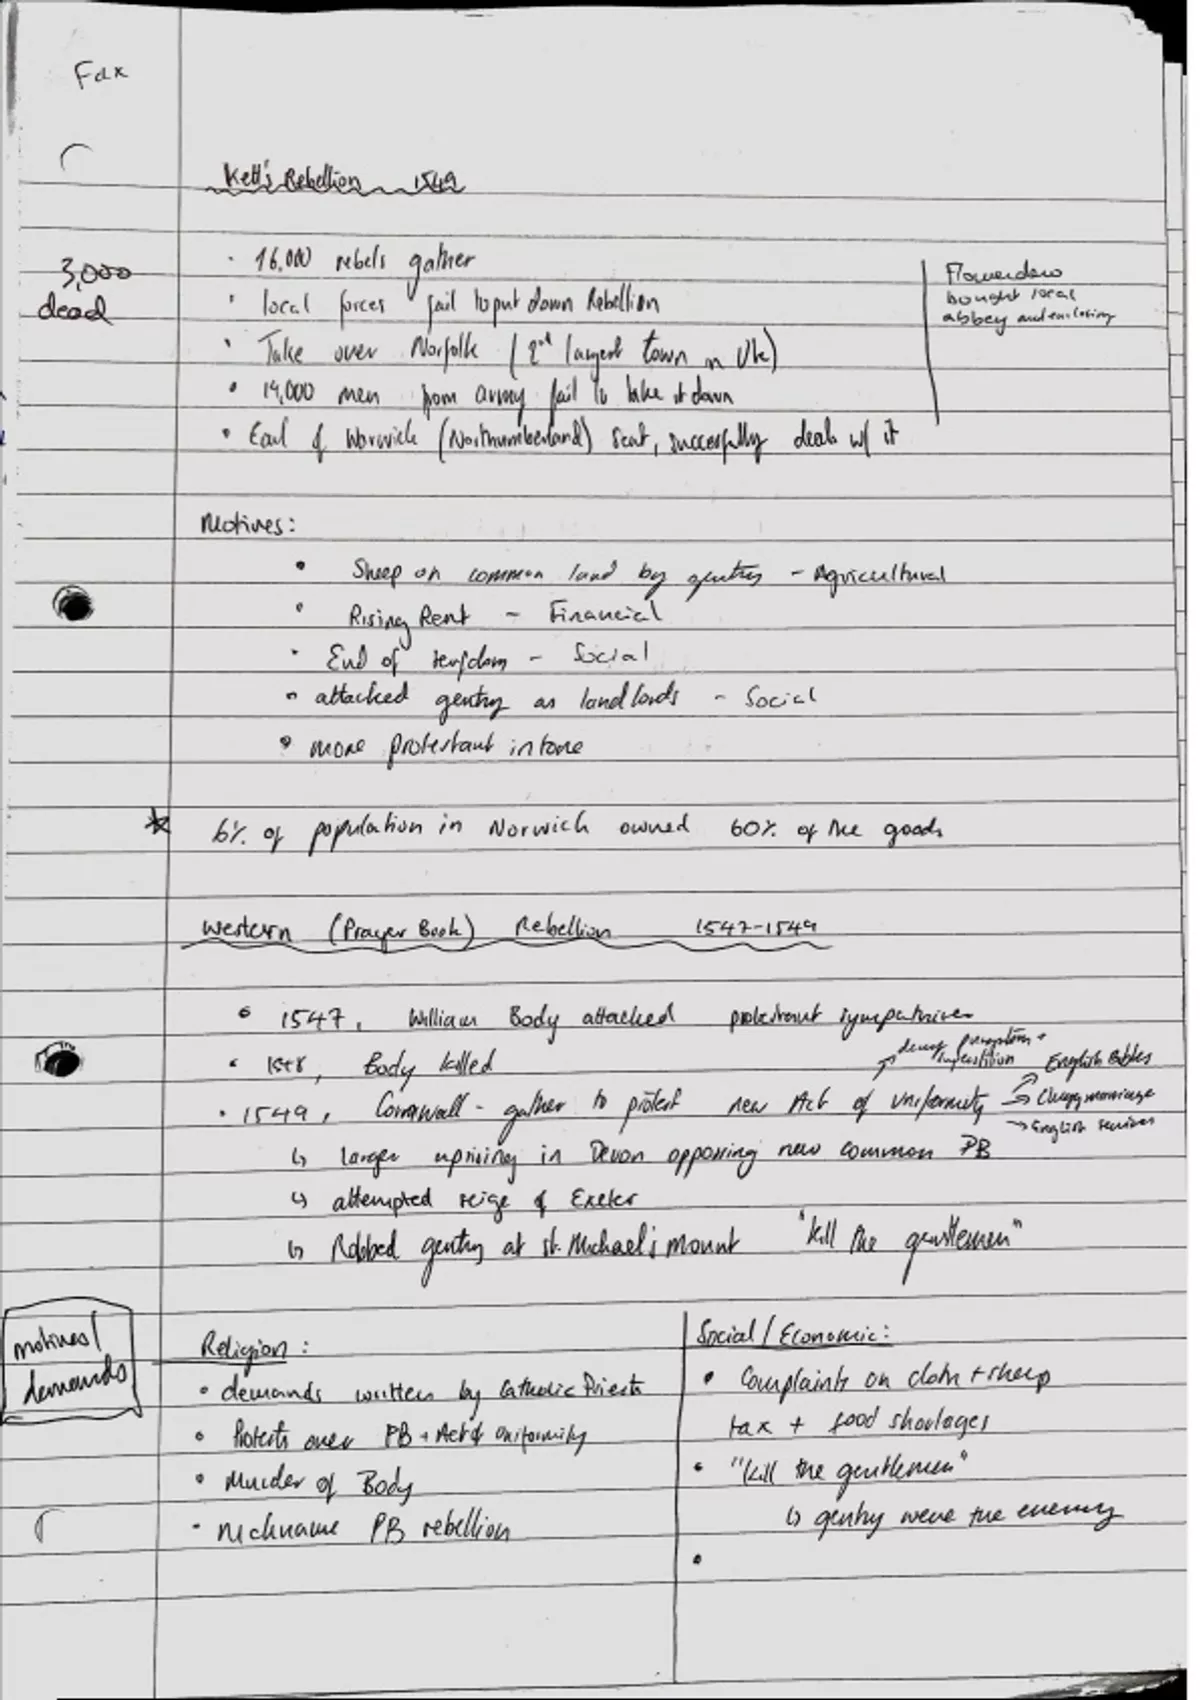 Fax
Kett's Rebellion 1549
3,000
dead
· 16,000 rebels gather
· local forces fail to put down Rebellion
· Take over Norfolk (2nd largest town in Uk)
· 14,000 men from army fail to take it down
· Earl of Warwick (Northumberland) sent, succesfully deals w/ it
Flowerdew
bought local
abbey and enclosing
Motives:
· Sheep on common land by gentry - Agricultural
· Rising Rent - Financial
· End of serfdom - Social
· attacked gentry as landlords - Social
· more protestant in tone
* 6% of population in Norwich owned 60% of the goods
Western (Prayer Book) Rebellion 1547-1549
· 1547, William Body attacked protestant sympathiser
· 1548, Body killed
· 1549, Cornwall - gather to protest new Act of Uniformity
superstition
→ English Bibles
→ Clergy marriage
→ English services
↳ larger uprising in Devon opposing new common PB
↳ attempted seige of Exeter
↳ Robbed gentry at St. Michael's Mount "kill the gentlemen"
motives/
demands
Religion:
· demands written by Catholic Priests
· Protests over PB + Act of Uniformity
· Murder of Body
· nickname PB rebellion
Social/Economic:
· Complaints on cloth + sheep
tax + food shortages
· "kill the gentlemen"
↳ gentry were the enemy
·